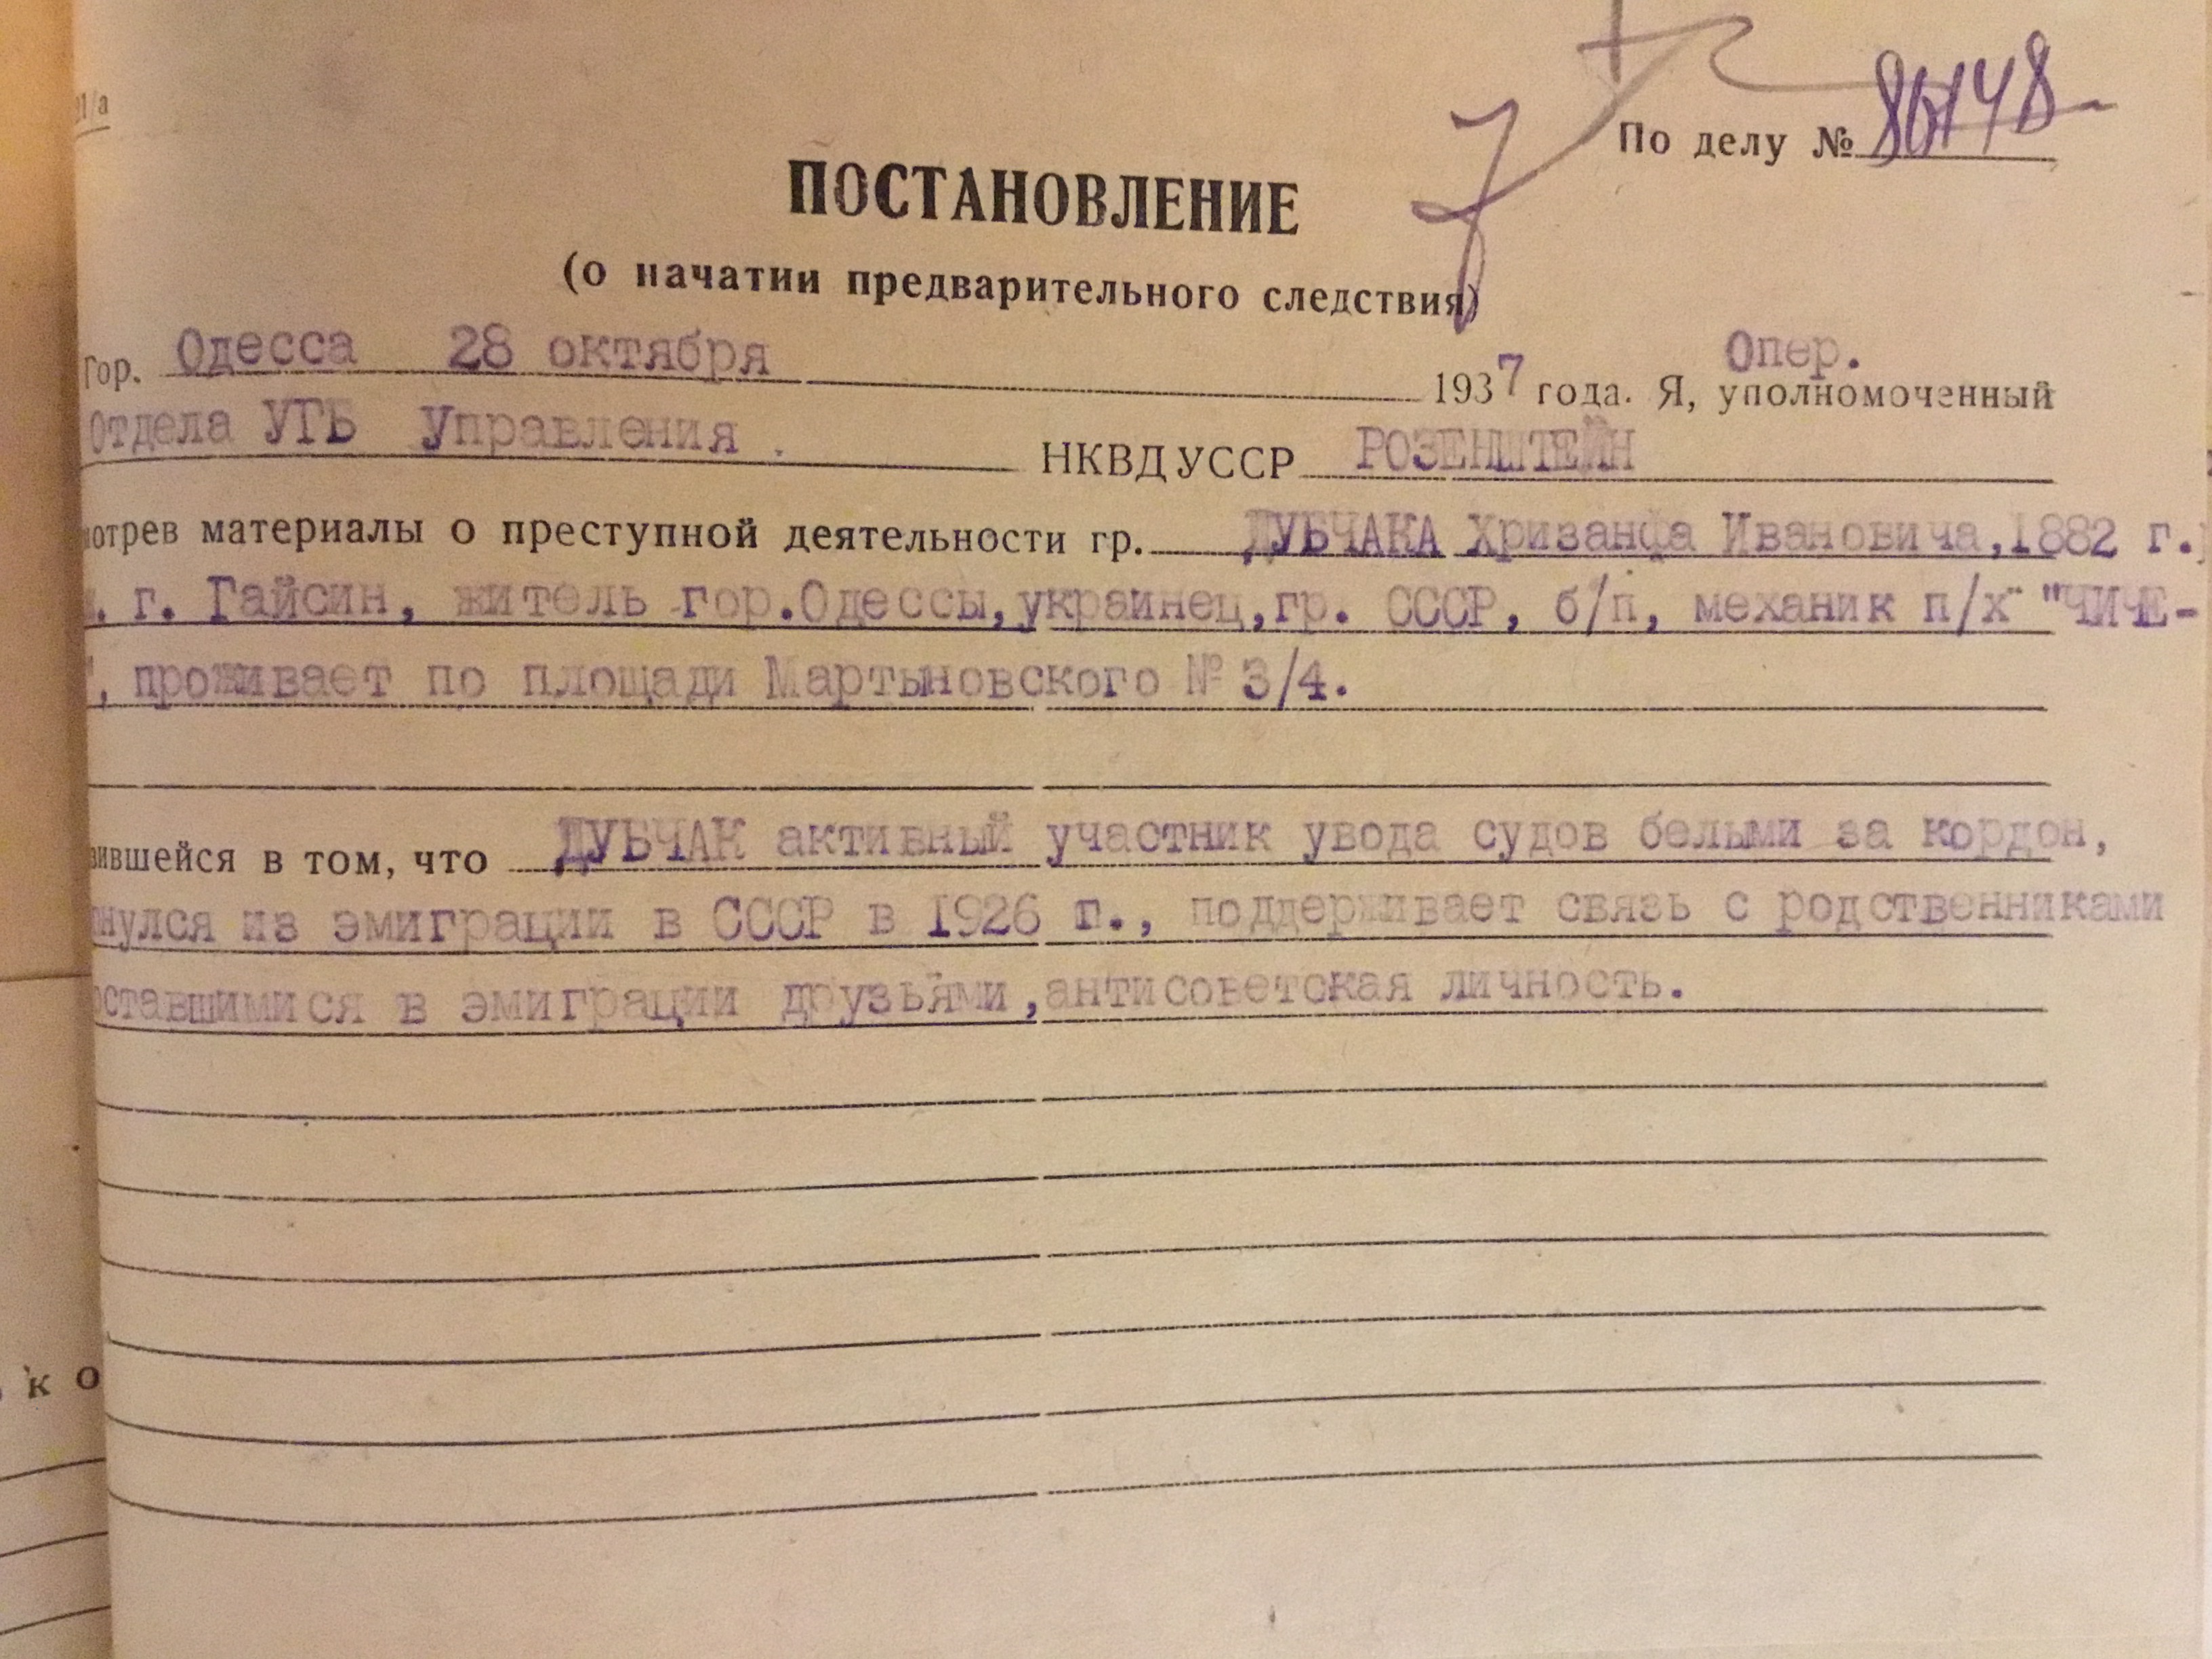 91/а
По делу № 86148
ПОСТАНОВЛЕНИЕ
(о начатии предварительного следствия)
Гор. Одесса 28 октября 1937 года. Я, Опер. уполномоченный
Отдела УГБ Управления НКВД УССР РОЗЕНШТЕЙН
мотрев материалы о преступной деятельности гр. ДУБЧАКА Хризанфа Ивановича,1882 г.
г. Гайсин, житель гор.Одессы,украинец,гр. СССР, б/п, механик п/х "ЧИЧЕ-
", проживает по площади Мартыновского № 3/4.
вившейся в том, что ДУБЧАК активный участник увода судов белыми за кордон,
нулся из эмиграции в СССР в 1926 г., поддерживает связь с родственниками
оставшимися в эмиграции друзьями,антисоветская личность.
ко